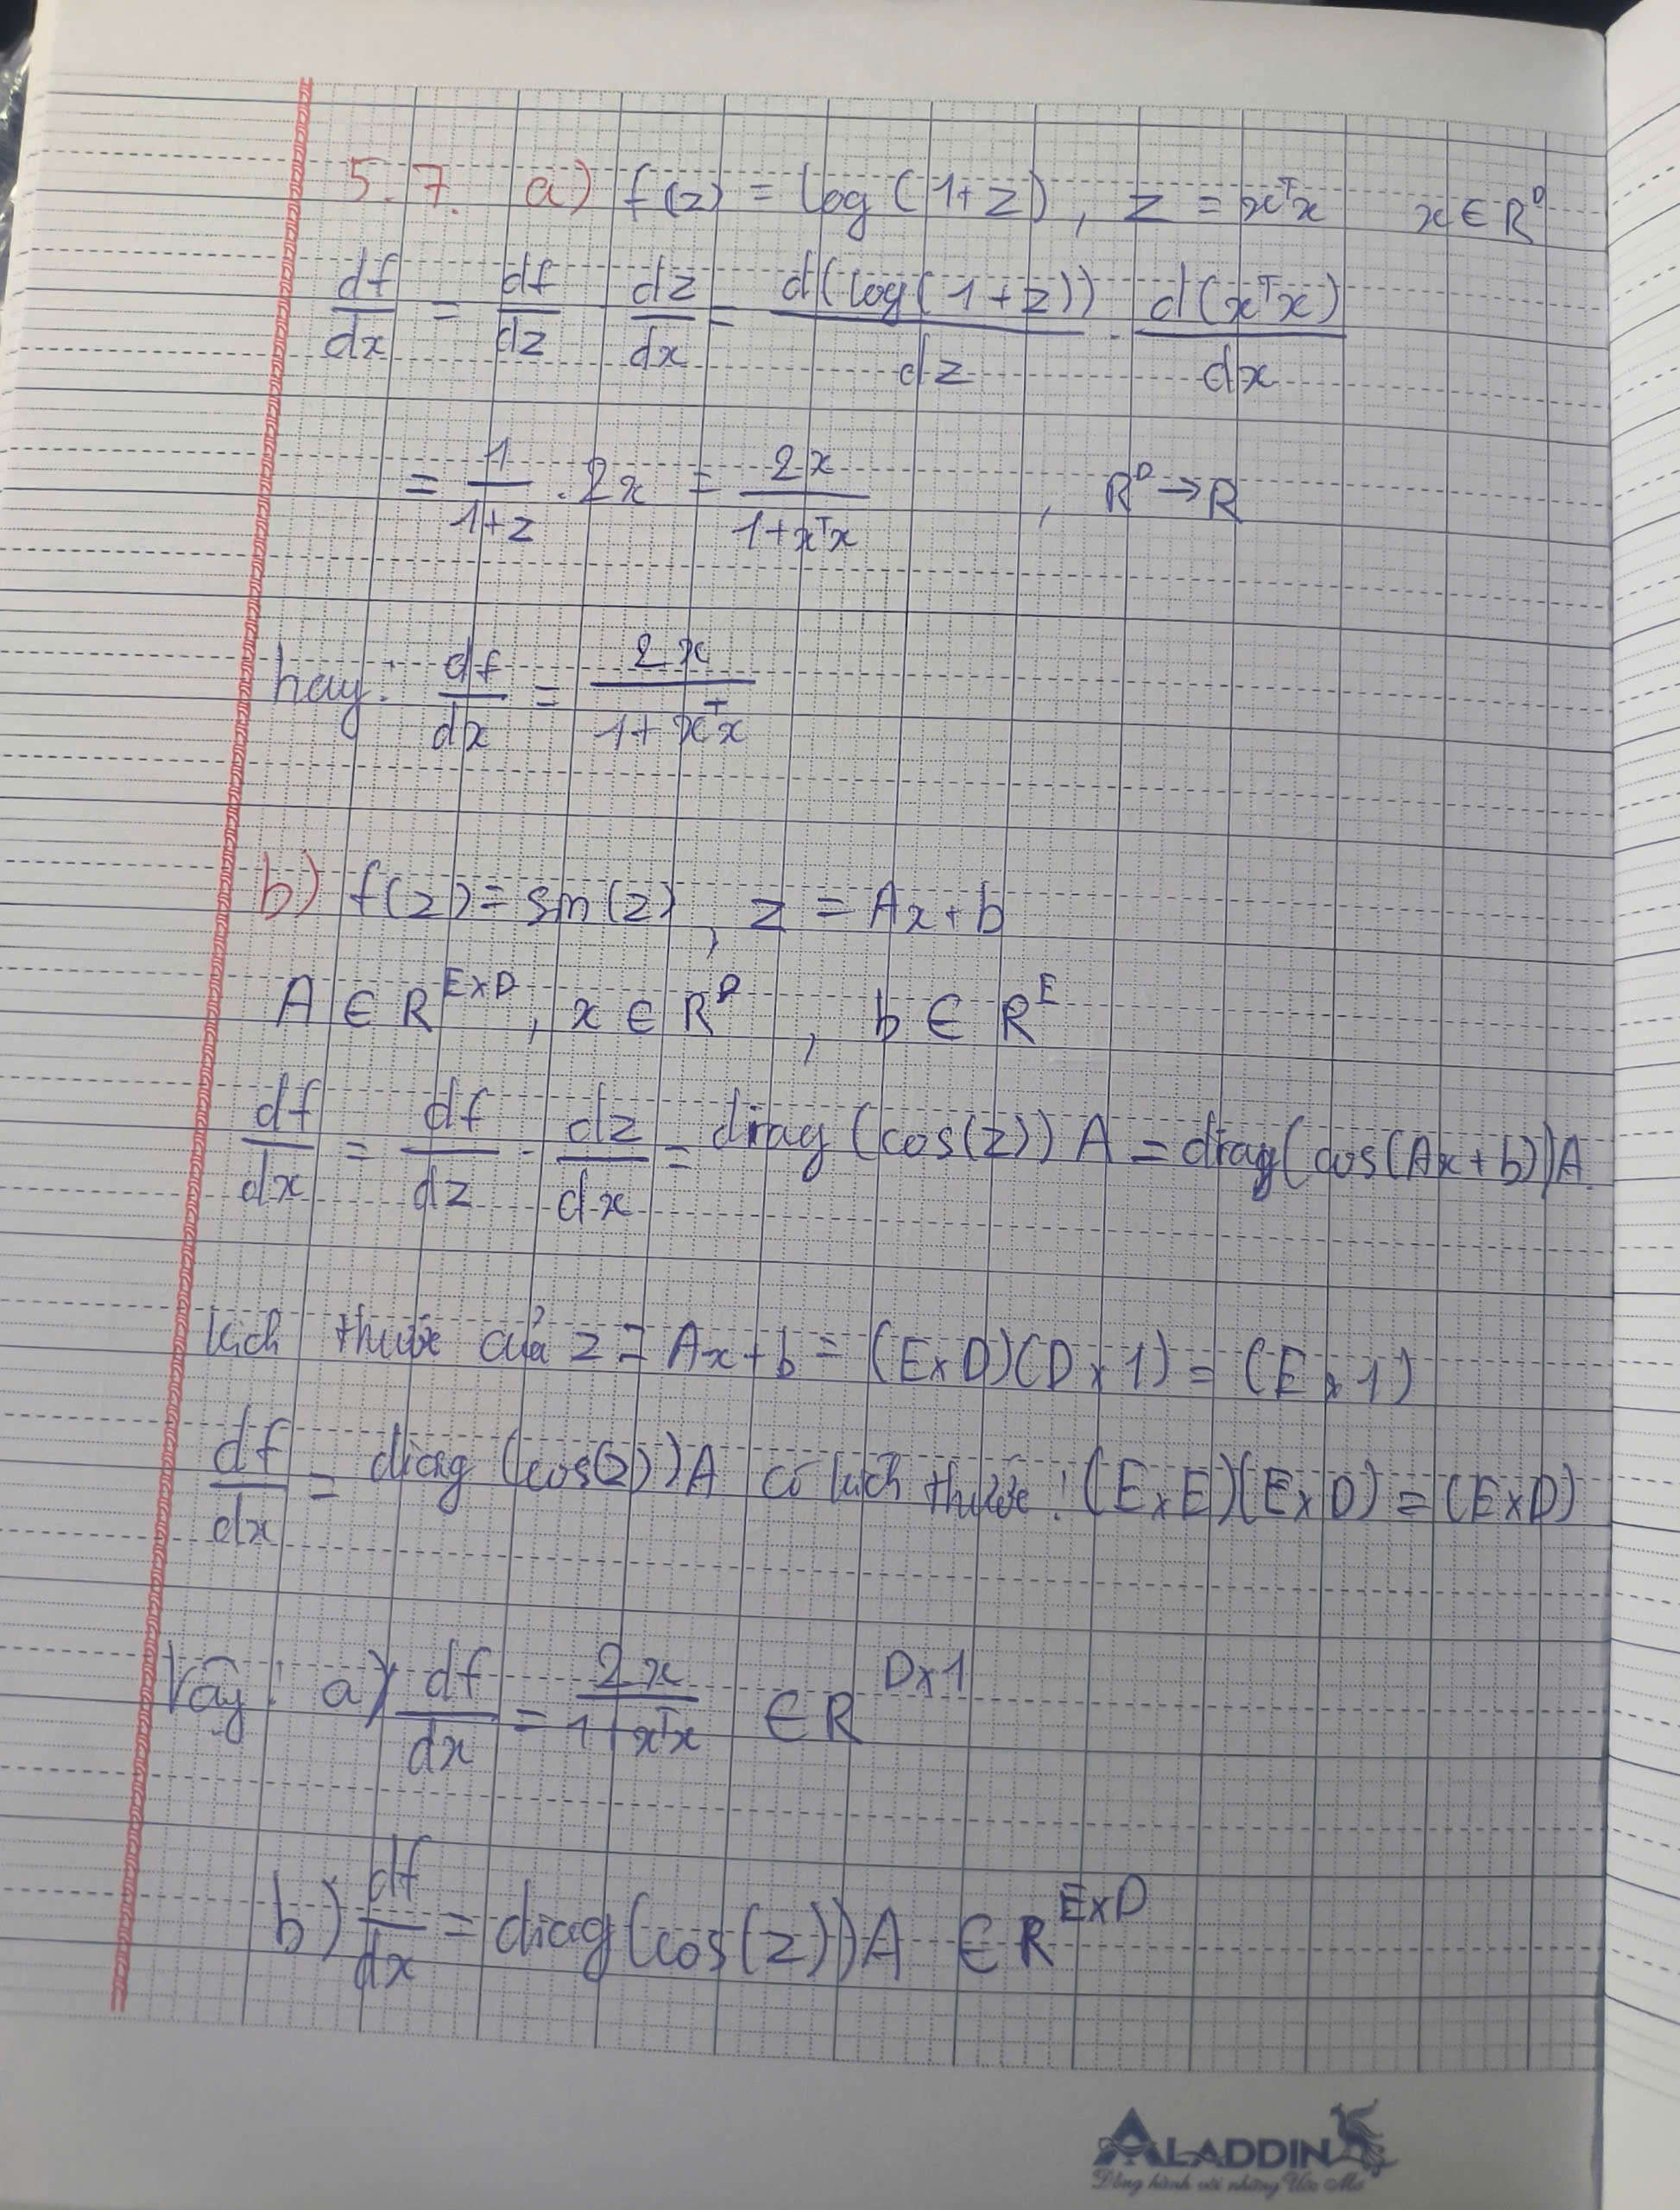 5.7. a) f(z) = log(1+z), z = xᵀx x ∈ Rᴰ
df/dx = df/dz dz/dx = d(log(1+z))/dz . d(xᵀx)/dx
= 1/(1+z) . 2x = 2x/(1+xᵀx) , Rᴰ → R
hay: df/dx = 2x/(1+xᵀx)
b) f(z) = sin(z), z = Ax+b
A ∈ R^(E×D), x ∈ Rᴰ, b ∈ Rᴱ
df/dx = df/dz . dz/dx = diag(cos(z))A = diag(cos(Ax+b))A
kích thước của z = Ax+b = (E×D)(D×1) = (E×1)
df/dx = diag(cos(z))A có kích thước: (E×E)(E×D) = (E×D)
Vậy: a) df/dx = 2x/(1+xᵀx) ∈ R^(D×1)
b) df/dx = diag(cos(z))A ∈ R^(E×D)
ALADDIN
Đồng hành với những Ước Mơ